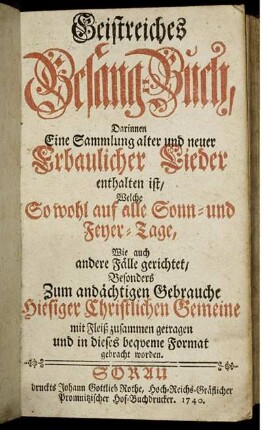 Geistreiches
Gesang-Buch,
Darinnen
Eine Sammlung alter und neuer
Erbaulicher Lieder
enthalten ist/
Welche
So wohl auf alle Sonn- und
Feyer-Tage,
Wie auch
andere Fälle gerichtet/
Besonders
Zum andächtigen Gebrauche
Hiesiger Christlichen Gemeine
mit Fleiß zusammen getragen
und in dieses beqveme Format
gebracht worden.
SORAU
druckts Johann Gottlieb Rothe, Hoch-Reichs-Gräflicher
Promnitzischer Hof-Buchdrucker. 1740.